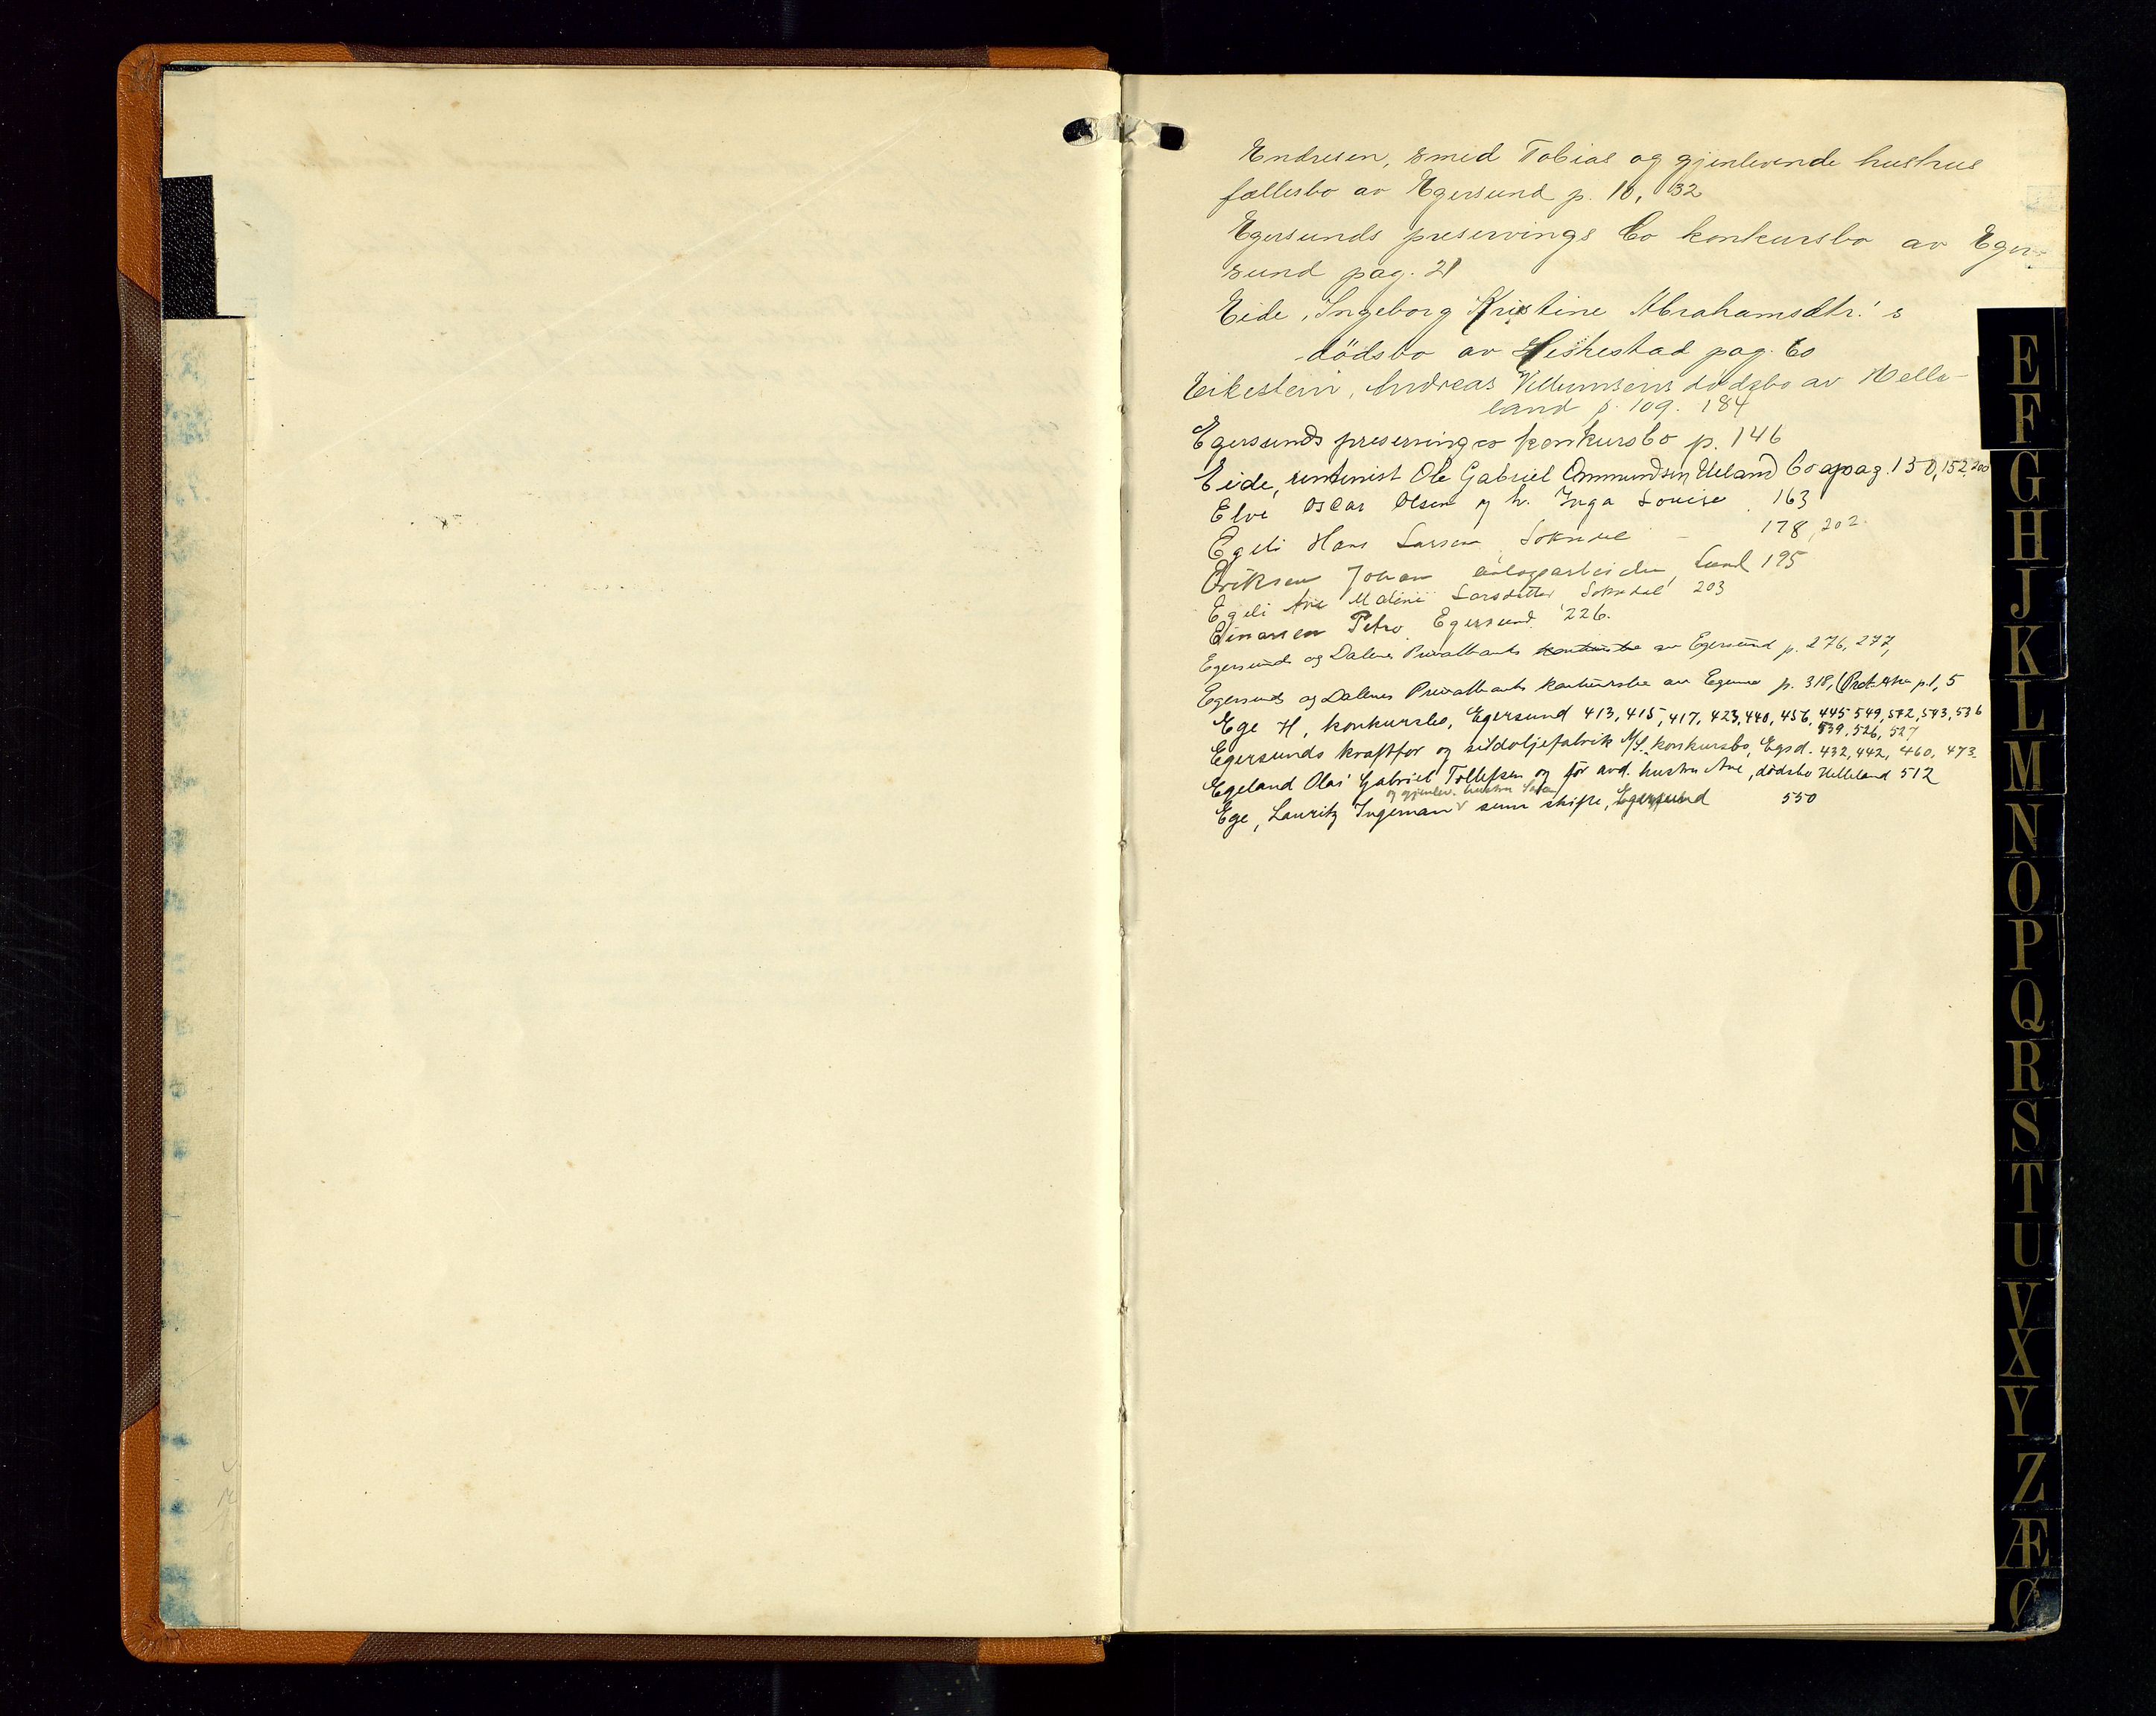 Endresen, smed Tobias og gjenlevende hustrus
fællesbo av Egersund p. 10, 32
Egersunds preservings Co konkursbo av Eger-
sund pag. 21
Eide, Ingeborg Kristine Abrahamsdtr.'s
dödsbo av Heskestad pag. 60
Eikestein, Andreas Villumsens dödsbo av Helle-
land p. 109. 184
Egersunds preserving co konkursbo p. 146
Eide, rentenist Ole Gabriel Ommundsen Ueland bo pag. 150, 152, 200
Elve Oscar Olsen og h. Inga Louise 163
Egeli Hans Larsen, Sokndal - 178, 202.
Eriksen Johan anlægsarbeider, Lund 195
Egeli Ane Maline Larsdatter Sokndal 203
Einarsen Petro. Egersund 226.
Egersunds og Dalenes Privatbanks konkursbo av Egersund p. 276, 277,
Egersunds og Dalenes Privatbanks konkursbo av Egersund p. 318, (Prot. p. 1, 5
Ege H, konkursbo, Egersund 413, 415, 417, 423, 440, 456, 445 549, 572, 543, 536
539, 526, 527
Egersunds kraftfor og sildoljefabrik A/S. konkursbo, Egsd. 432, 442, 460, 473.
Egeland Olai Gabriel Tollefsen og før avd. hustru Ane, dödsbo Helleland 512
og gjenlev. hustru Sara
Ege, Lauritz Ingeman sam skifte, Egersund 550
E
F
G
H
J
K
L
M
N
O
P
Q
R
S
T
U
V
X
Y
Z
Æ
Ø